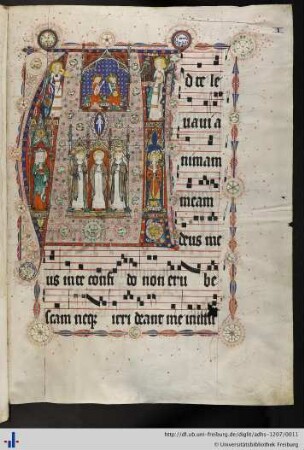 I
A
d te le
vaui a
nimam
meam
deus me
us in te confi do non eru be
scam neq; irri deant me inimi
http://dl.ub.uni-freiburg.de/diglit/adhs-1207/0011
© Universitätsbibliothek Freiburg